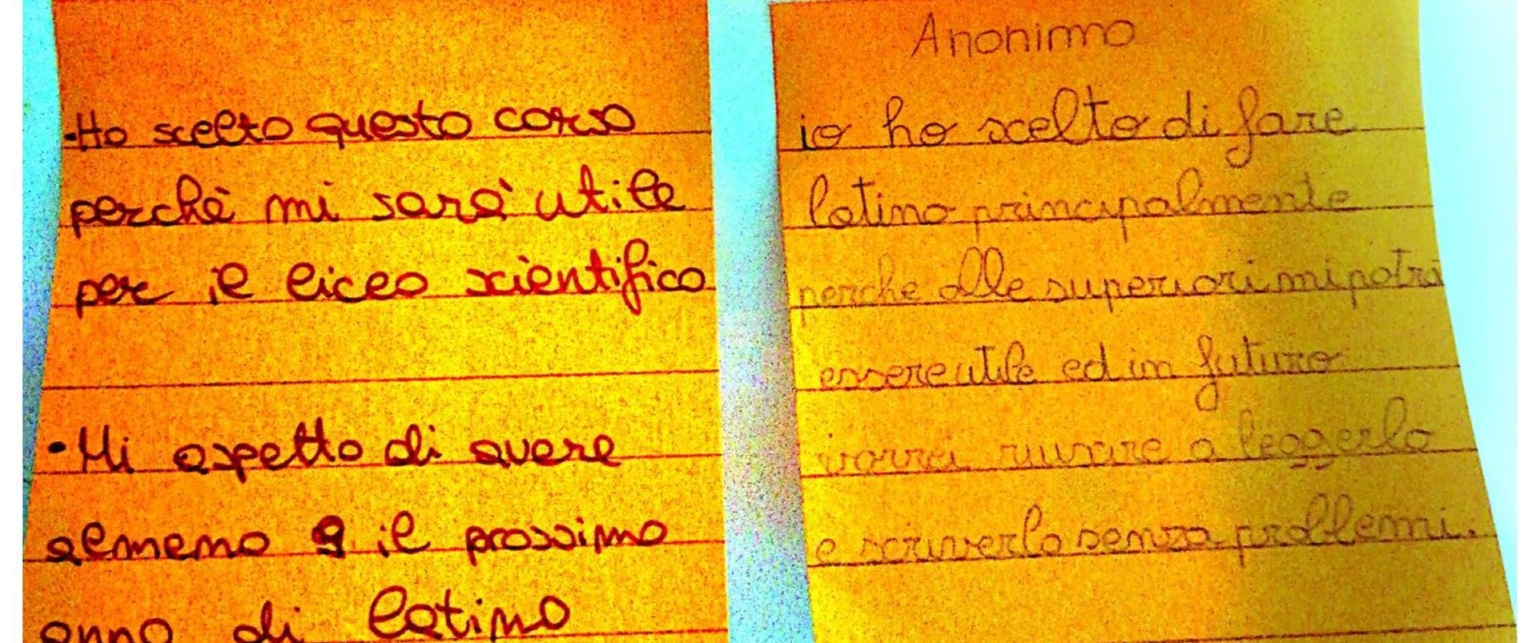 •Ho scelto questo corso
perchè mi sarà utile
per il liceo scientifico
•Mi aspetto di avere
almeno 9 il prossimo
anno di latino
Anonimo
io ho scelto di fare
latino principalmente
perche alle superiori mi potrà
essere utile ed in futuro
vorrei riuscire a leggerlo
e scriverlo senza problemi.